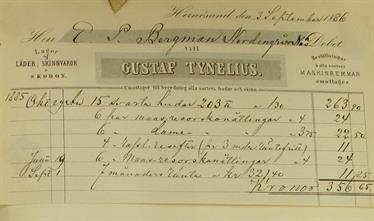 Hernösand den 3 September 1886
Herr E P Bergman Nordingrå Debet
till
Lager
af
LÄDER, SKINNVAROR
&
SKODON.
GUSTAF TYNELIUS.
Beställningar
å alla sorters
MASKINREMMAR
emottages.
Emottager till beredning alla sorters hudar och skinn.
1885 15 svarta hudar 203 1/30 263 90
6 par 4 24
6 dame 3 75 22 50
4 (för 3 mdrs ränta) 11
Juni 19 6 4 24
Sept 1 7 månaders ränta kr 321,40 11 25
Kronor 356 65